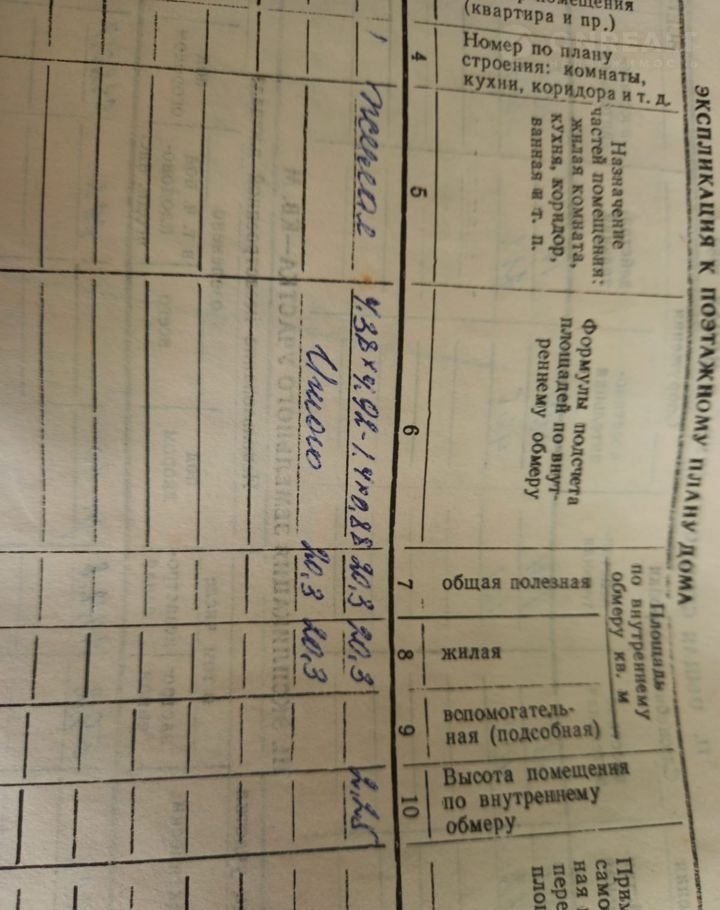 ЭКСПЛИКАЦИЯ К ПОЭТАЖНОМУ ПЛАНУ ДОМА
помещения
(квартира и пр.)
Номер по плану
строения: комнаты,
кухни, коридора и т. д.
Назначение
частей помещения:
жилая комната,
кухня, коридор,
ванная и т. п.
Формулы подсчета
площадей по внут-
реннему обмеру
Площадь
по внутреннему
обмеру кв. м
общая полезная
жилая
вспомогатель-
ная (подсобная)
Высота помещения
по внутреннему
обмеру
Прим
само
ная
пере
площ
4 5 6 7 8 9 10
20,3 20,3 2.25
Итого 20,3 20,3